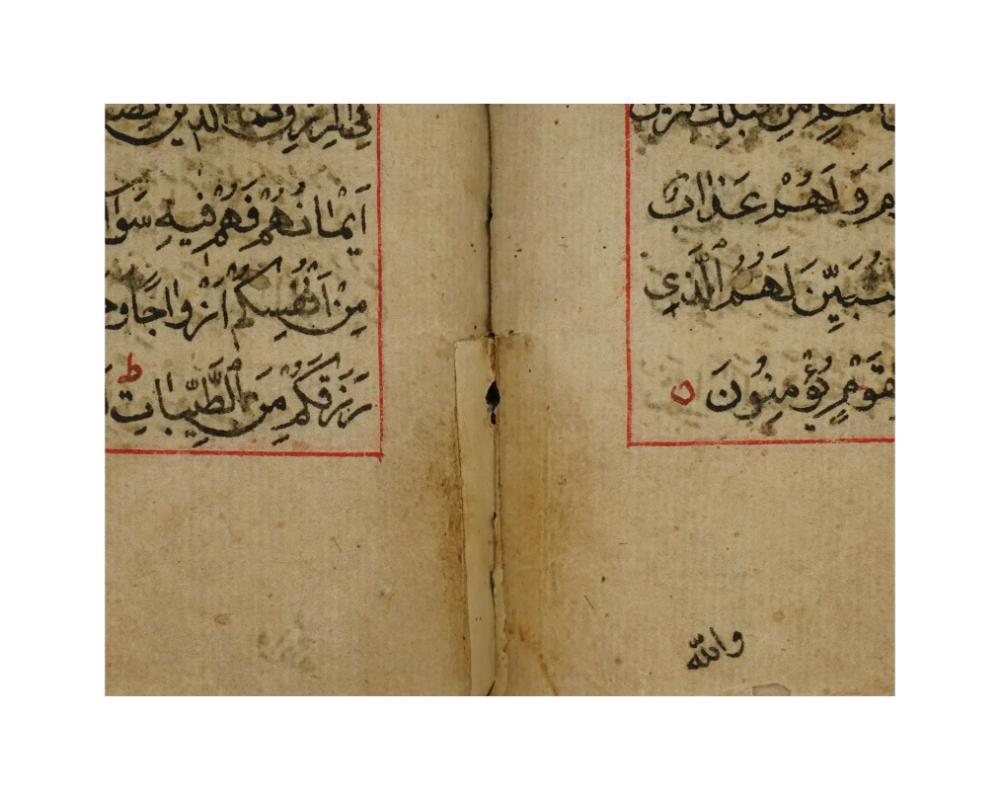 مِنْ قَبْلِكَ فَزَيَّنَ
وَلَهُمْ عَذَابٌ
لِتُبَيِّنَ لَهُمُ الَّذِي
لِقَوْمٍ يُؤْمِنُونَ ه
والله
فِي الرِّزْقِ فَمَا الَّذِينَ
اَيْمَانُهُمْ فَهُمْ فِيهِ سَوَا
مِنْ اَنْفُسِكُمْ اَزْوَاجًا وَ
رَزَقَكُمْ مِنَ الطَّيِّبَاتِ ط